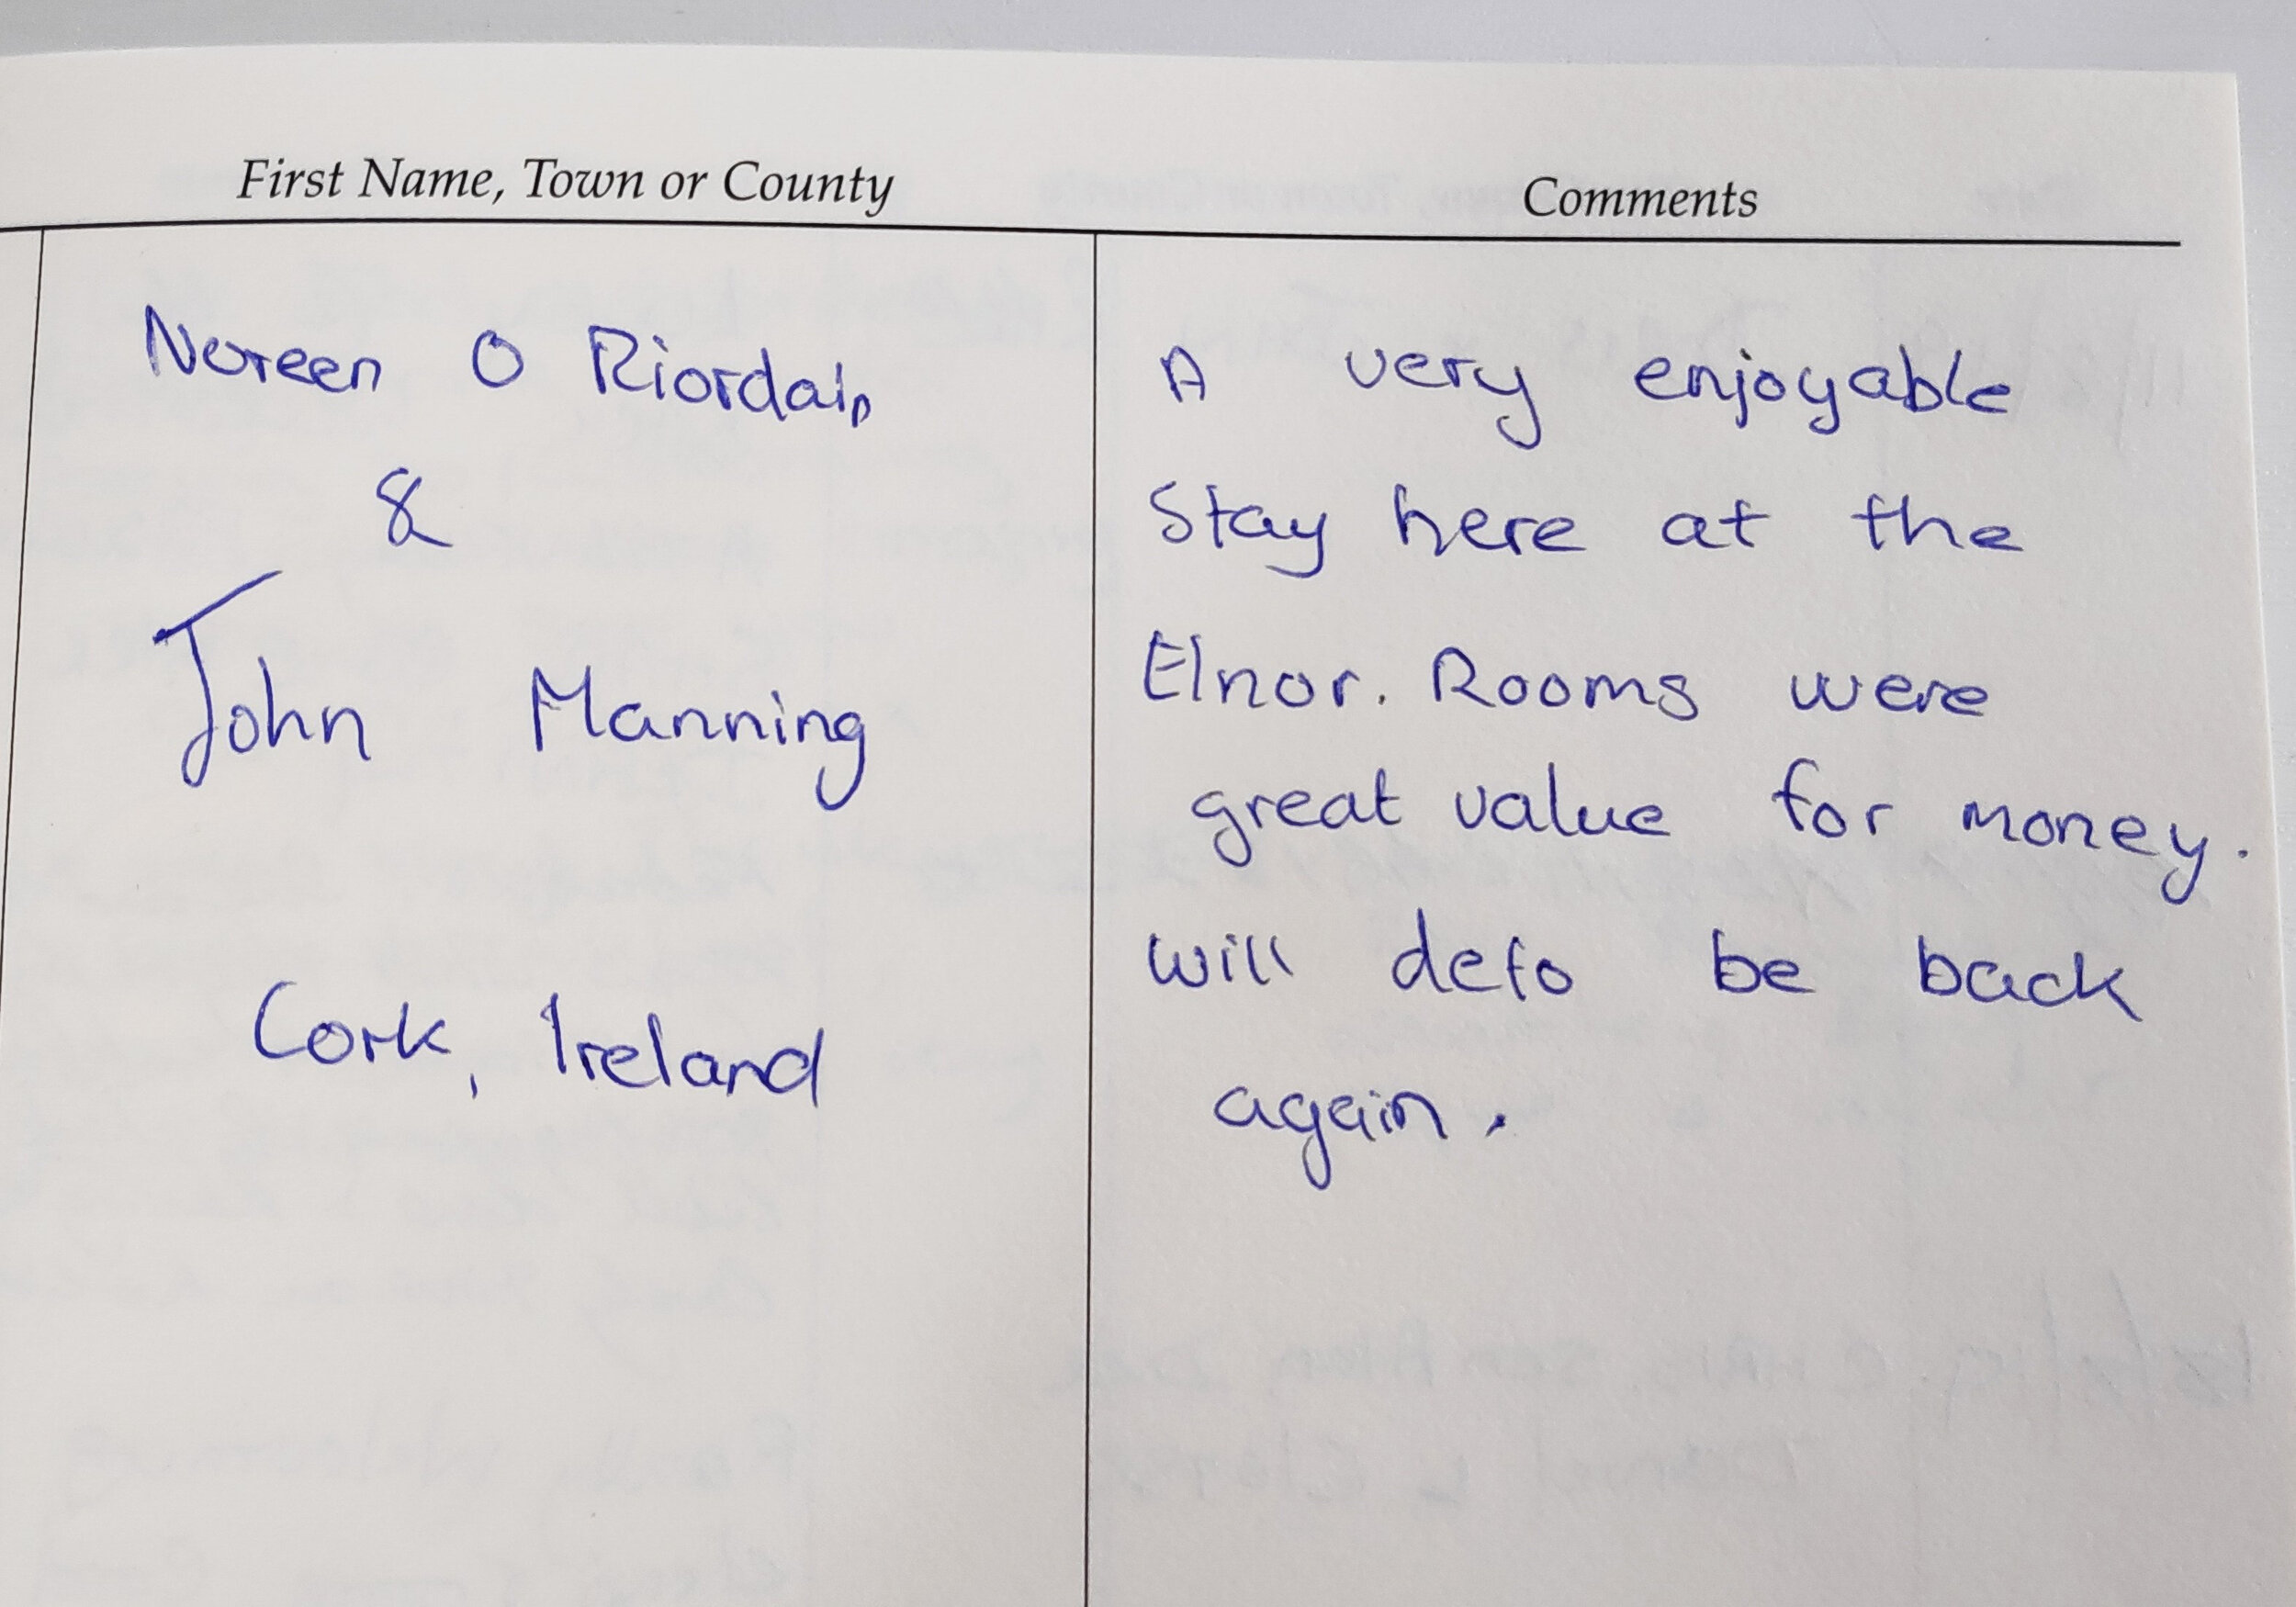 First Name, Town or County
Comments
Noreen O Riordain
&
John Manning
Cork, Ireland
A very enjoyable
Stay here at the
Elnor. Rooms were
great value for money.
will defo be back
again.